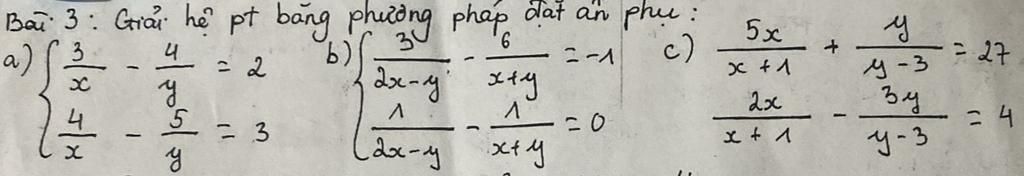 Bài 3: Giải hệ pt bằng phương pháp đặt ẩn phụ:
a) { 3/x - 4/y = 2
4/x - 5/y = 3
b) { 3/(2x-y) - 6/(x+y) = -1
1/(2x-y) - 1/(x+y) = 0
c) 5x/(x+1) + y/(y-3) = 27
2x/(x+1) - 3y/(y-3) = 4